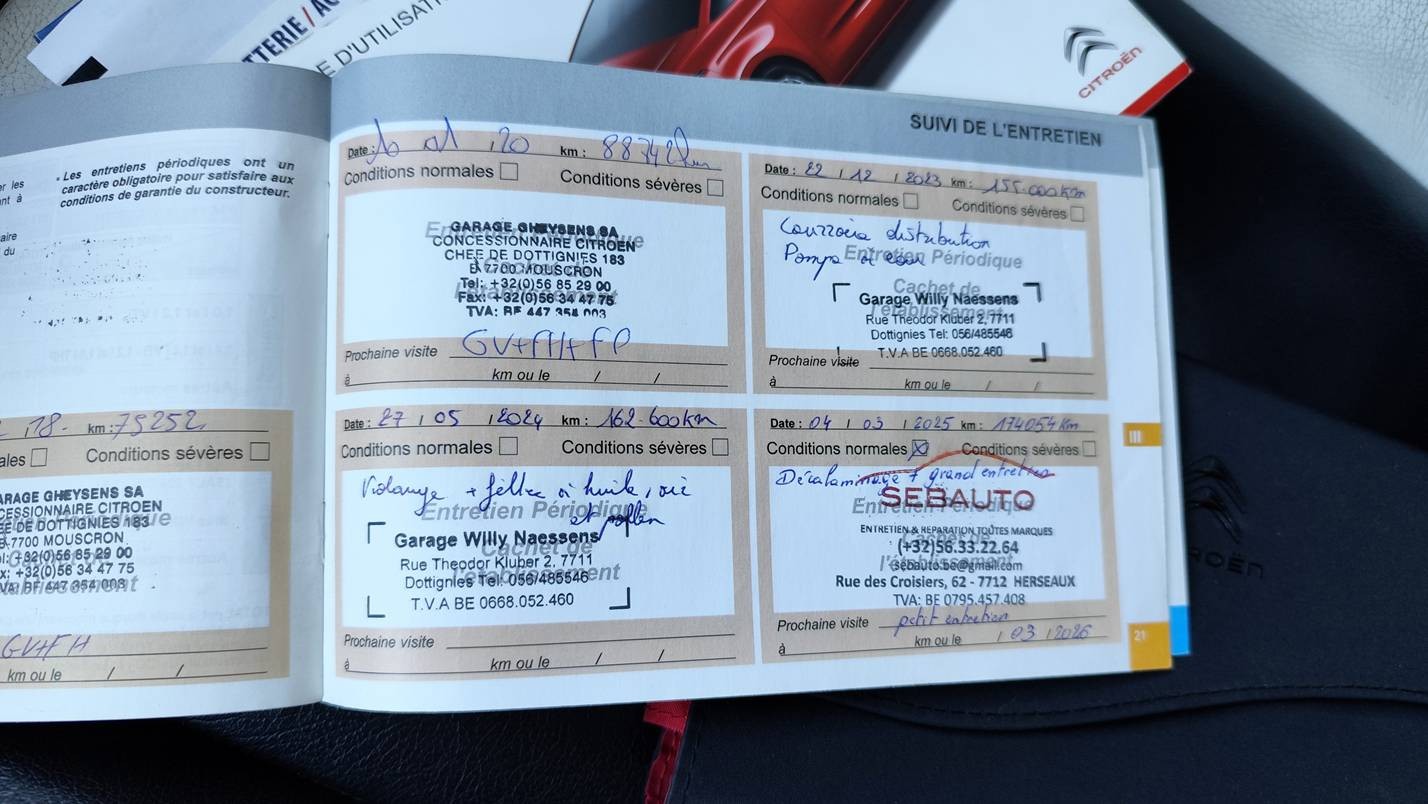 TTERIE / AU
E D'UTILISAT
CITROËN
SUIVI DE L'ENTRETIEN
• Les entretiens périodiques ont un
caractère obligatoire pour satisfaire aux
conditions de garantie du constructeur.
er les
ant à
aire
du
18. km : 75252
ales Conditions sévères
ARAGE GHEYSENS SA
CESSIONNAIRE CITROEN
EE DE DOTTIGNIES 183
7700 MOUSCRON
el: +32(0)56 85 29 00
x: +32(0)56 34 47 75
VA: BE 447 354 003
GV+FH
km ou le / /
Date : 20 km : 88742km
Conditions normales Conditions sévères
Entretien Périodique
GARAGE GHEYSENS SA
CONCESSIONNAIRE CITROEN
CHEE DE DOTTIGNIES 183
B 7700 MOUSCRON
Tel: +32(0)56 85 29 00
Fax: +32(0)56 34 47 75
TVA: BE 447 354 003
Prochaine visite GV+FH+FP
à km ou le / /
Date : 22 / 12 / 2023 km : 155.000Km
Conditions normales Conditions sévères
Courroie distribution
Pompe à eau
Entretien Périodique
Cachet de
l'établissement
Garage Willy Naessens
Rue Theodor Kluber 2, 7711
Dottignies Tel: 056/485546
T.V.A BE 0668.052.460
Prochaine visite
à km ou le / /
Date : 27 / 05 / 2024 km : 162.600km
Conditions normales Conditions sévères
Vidange + filtre à huile, air
et pollen
Entretien Périodique
Cachet de
l'établissement
Garage Willy Naessens
Rue Theodor Kluber 2, 7711
Dottignies Tel: 056/485546
T.V.A BE 0668.052.460
Prochaine visite
à km ou le / /
Date : 04 / 03 / 2025 km : 174054Km
Conditions normales Conditions sévères
Décalaminage + grand entretien
SEBAUTO
Entretien Périodique
ENTRETIEN & REPARATION TOUTES MARQUES
Cachet de
(+32)56.33.22.64
l'établissement
sebauto.be@gmail.com
Rue des Croisiers, 62 - 7712 HERSEAUX
TVA: BE 0795.457.408
Prochaine visite petit entretien
à km ou le / 03 / 2026
III
21